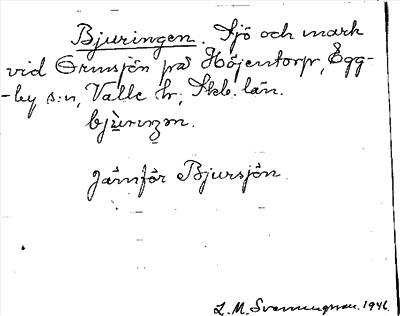 Bjuringen. Sjö och mark
vid Ormsjön på Höjentorp, Egg-
-by s:n, Valle hr, Skb. län.
bjùrıŋən.
Jämför Bjursjön.
L. M. Svenungsson. 1946.